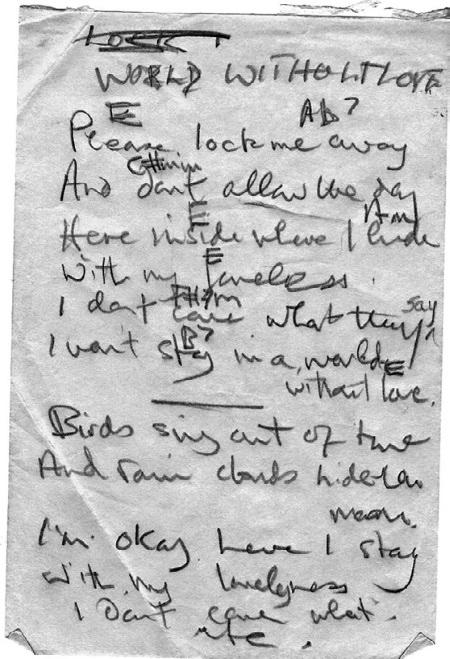 LOCK
WORLD WITHOUT LOVE
E Ab7
Please lock me away
C#minm
And don't allow the day
E Am
Here inside where I hide
E
with my loneliness.
F#m
I don't care what they say
B7
I wont stay in a world
E
without love.
Birds sing out of tune
And rain clouds hide the
moon.
I'm okay here I stay
with my lonelyness
I Dont care what.
etc.